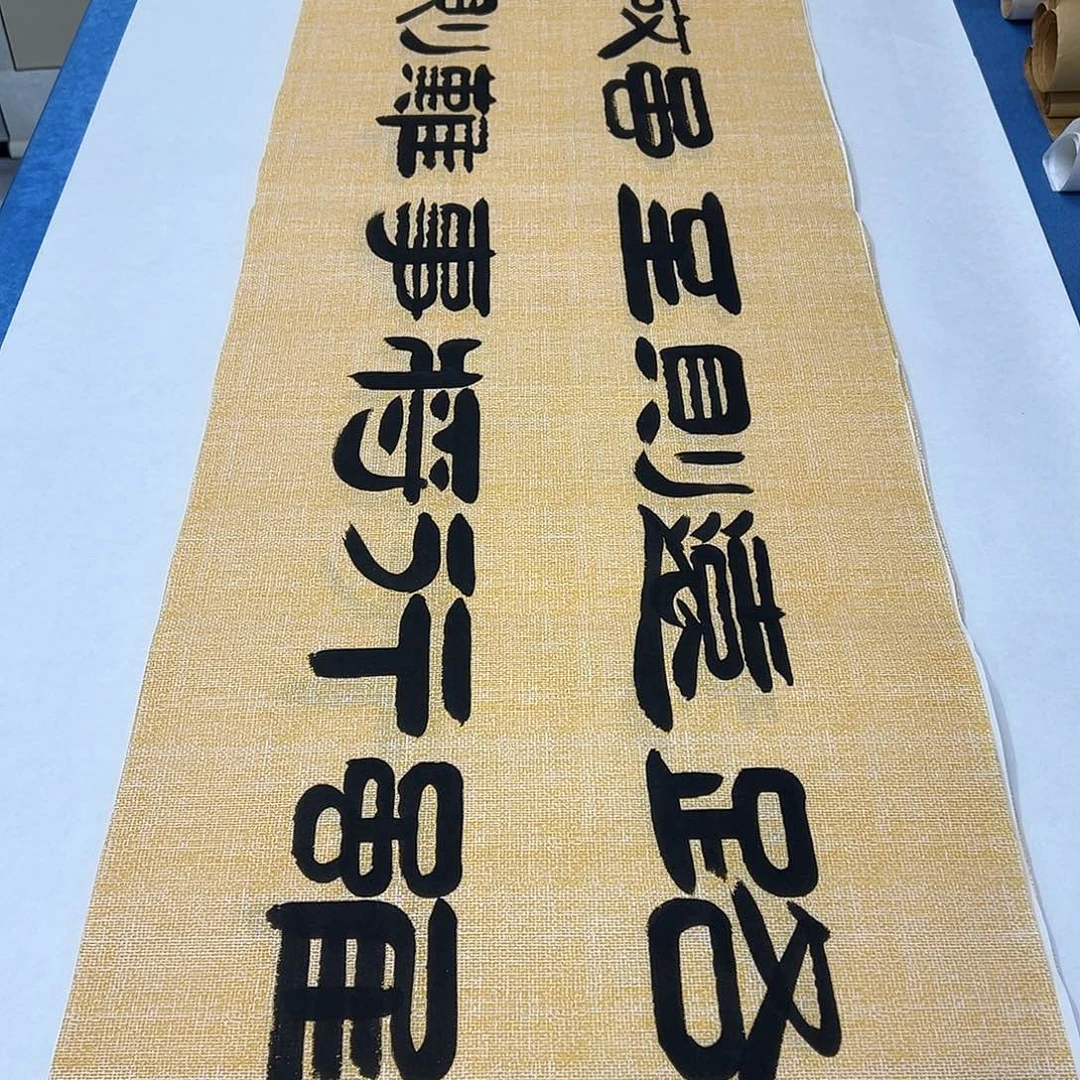 路雖
遠行
則將
至事
難
則